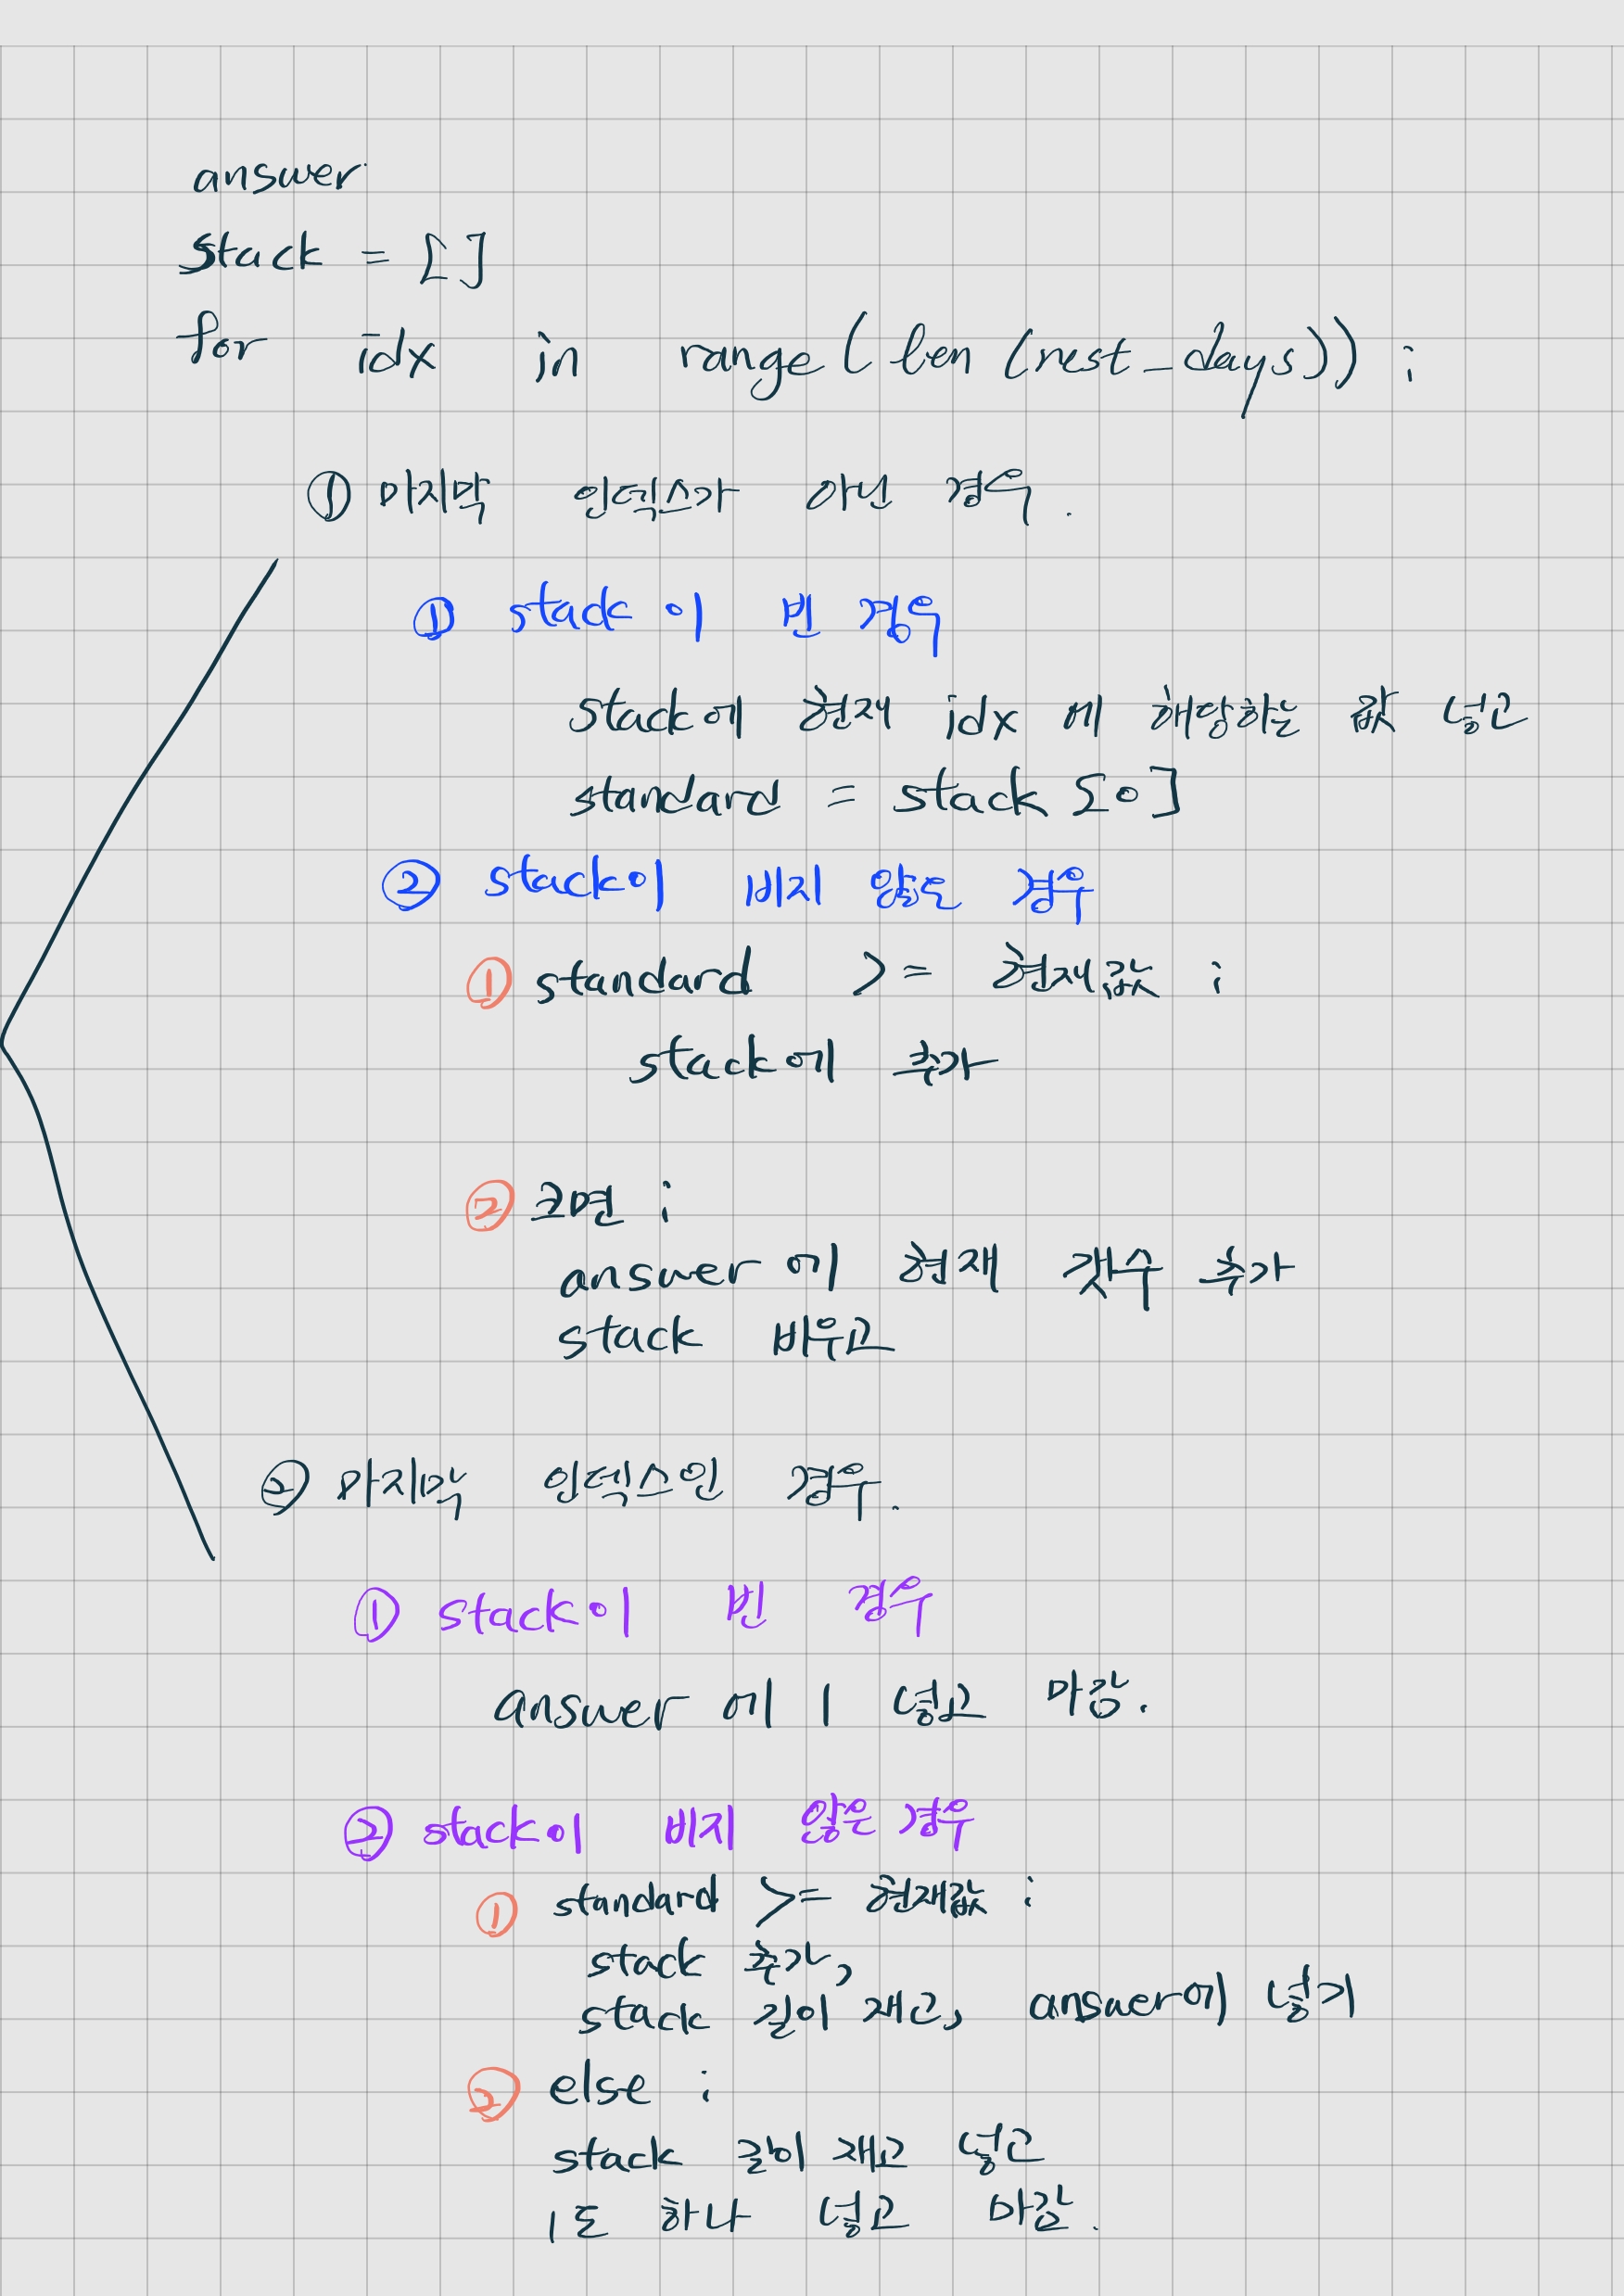 answer
stack = []
for idx in range(len(rest_days)):
① 마지막 인덱스가 아닌 경우.
① stack이 빈 경우
stack에 현재 idx에 해당하는 값 넣고
standard = stack[0]
② stack이 비지 않은 경우
① standard >= 현재값 :
stack에 추가
② 크면 :
answer에 현재 갯수 추가
stack 비우고
② 마지막 인덱스인 경우.
① stack이 빈 경우
answer에 1 넣고 마감.
② stack이 비지 않은 경우
① standard >= 현재값 :
stack 추가,
stack 길이 재고, answer에 넣기
② else :
stack 길이 재고 넣고
1도 하나 넣고 마감.